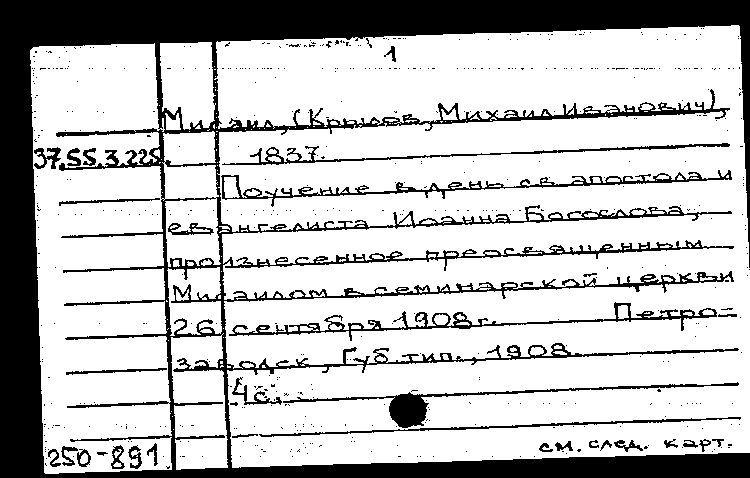 1
Мисаил, (Крылов, Михаил Иванович),
37.55.3.225. 1837.
Поучение в день св. апостола и
евангелиста Иоанна Богослова,
произнесенное преосвященным
Мисаилом в семинарской церкви
26 сентября 1908 г. Петро-
заводск, Губ. тип., 1908.
4с.
250-891 см. след. карт.